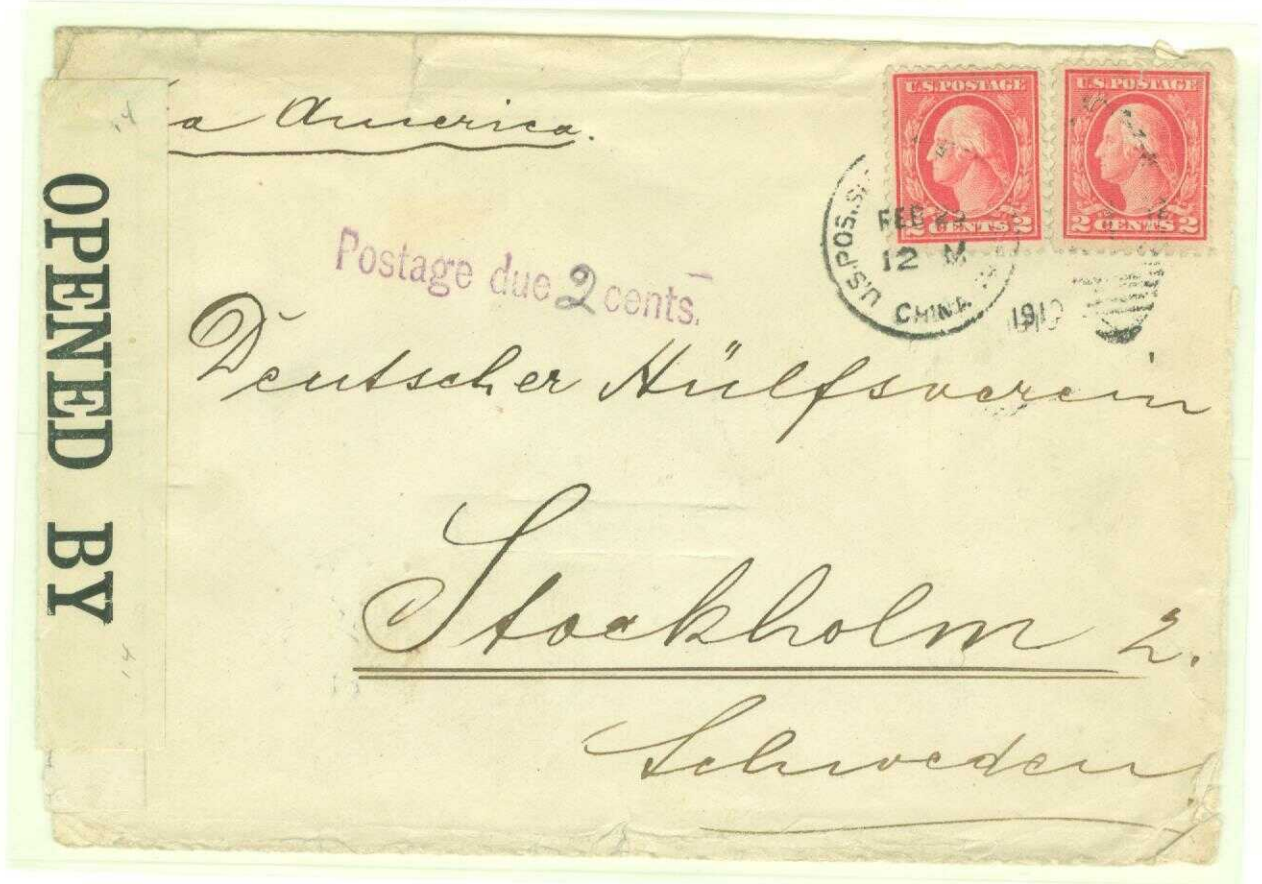 a America.
OPENED BY
U.S. POSTAGE
2 CENTS 2
U.S. POSTAGE
2 CENTS 2
U.S. POS.
FEB 29
12 M
CHINA
191
Postage due 2 cents.
Deutscher Hülfsverein
Stockholm 2.
Schweden